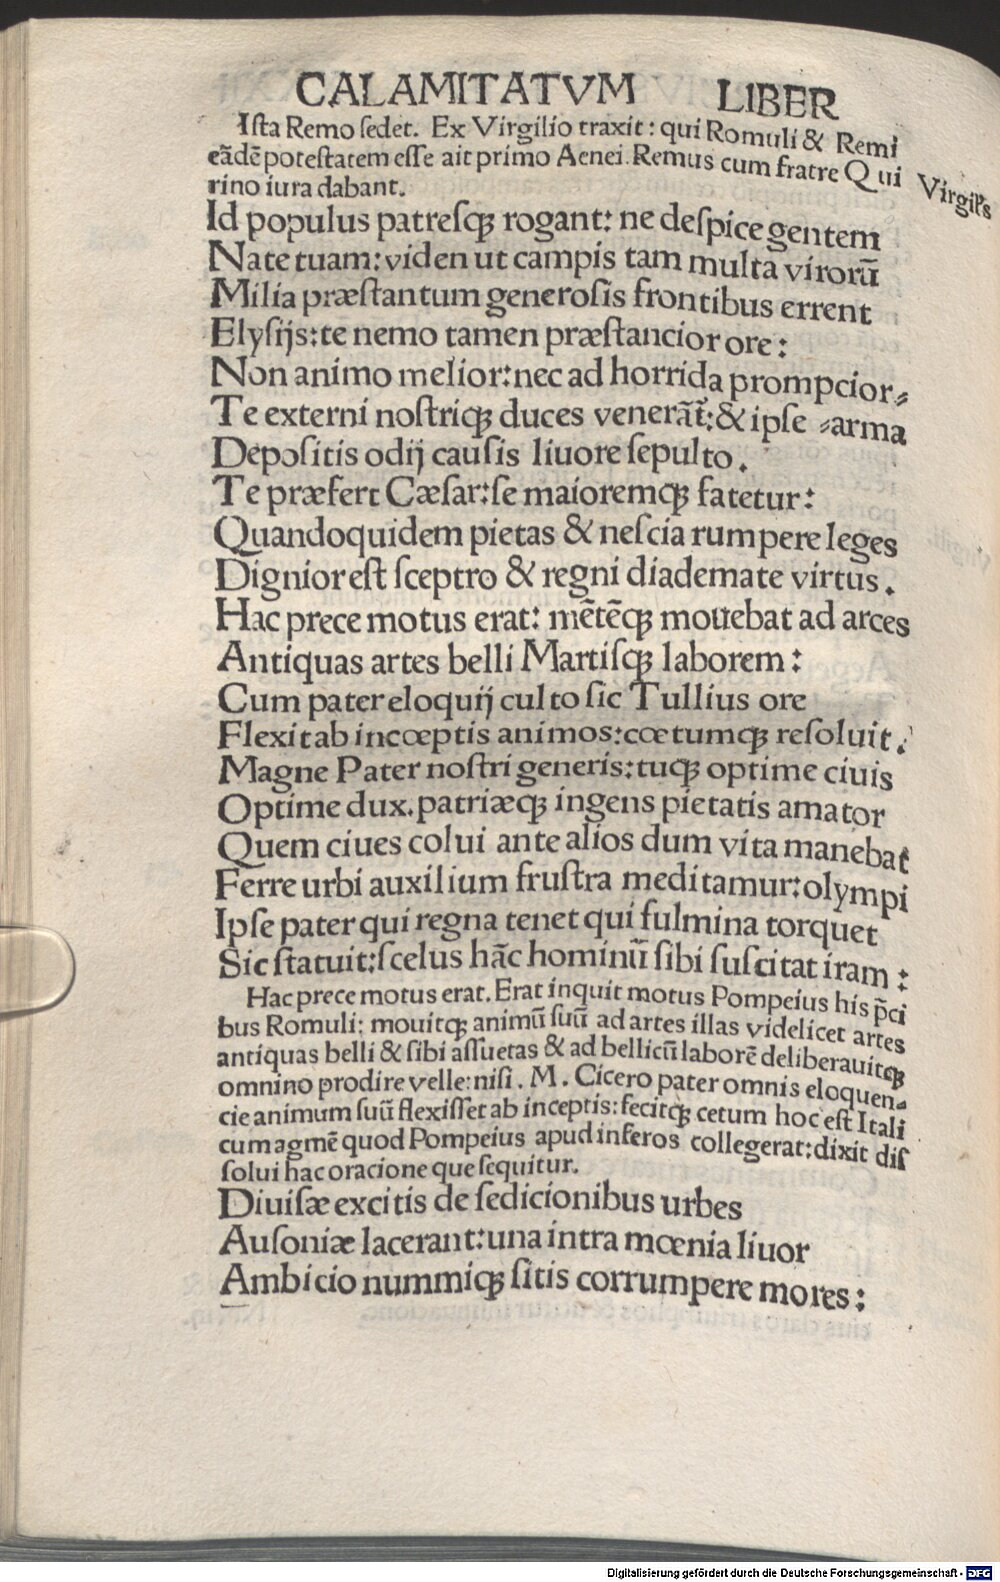 CALAMITATVM LIBER
Ista Remo ſedet. Ex Virgilio traxit: qui Romuli & Remi
eādē poteſtatem eſſe ait primo Aenei. Remus cum fratre Qui
Virgiľs
rino iura dabant.
Id populus patreſqꝫ rogant: ne deſpice gentem
Nate tuam: viden ut campis tam multa virorū
Milia præſtantum generoſis frontibus errent
Elyſijs: te nemo tamen præſtancior ore:
Non animo melior: nec ad horrida prompcior⸗
Te externi noſtriqꝫ duces venerāt: & ipſe ⸗arma
Depoſitis odij cauſis liuore ſepulto.
Te præfert Cæſar: ſe maioremqꝫ fatetur:
Quandoquidem pietas & neſcia rumpere leges
Dignior eſt ſceptro & regni diademate virtus.
Hac prece motus erat: mētēqꝫ mouebat ad arces
Antiquas artes belli Martiſqꝫ laborem:
Cum pater eloquij culto ſic Tullius ore
Flexit ab incœptis animos: cœtumqꝫ reſoluit.
Magne Pater noſtri generis: tuqꝫ optime ciuis
Optime dux. patriæqꝫ ingens pietatis amator
Quem ciues colui ante alios dum vita manebat
Ferre urbi auxilium fruſtra meditamur: olympi
Ipſe pater qui regna tenet qui fulmina torquet
Sic ſtatuit: ſcelus hāc hominū ſibi ſuſcitat iram:
Hac prece motus erat. Erat inquit motus Pompeius his p̄ci
bus Romuli: mouitqꝫ animū ſuū ad artes illas videlicet artes
antiquas belli & ſibi aſſuetas & ad bellicū laborē deliberauitqꝫ
omnino prodire velle: niſi. M. Cicero pater omnis eloquen⸗
cie animum ſuū flexiſſet ab inceptis: fecitqꝫ cetum hoc eſt Itali
cum agmē quod Pompeius apud inferos collegerat: dixit diſ
ſolui hac oracione que ſequitur.
Diuiſæ excitis de ſedicionibus urbes
Auſoniæ lacerant: una intra mœnia liuor
Ambicio nummiqꝫ ſitis corrumpere mores:
Digitalisierung gefördert durch die Deutsche Forschungsgemeinschaft - DFG